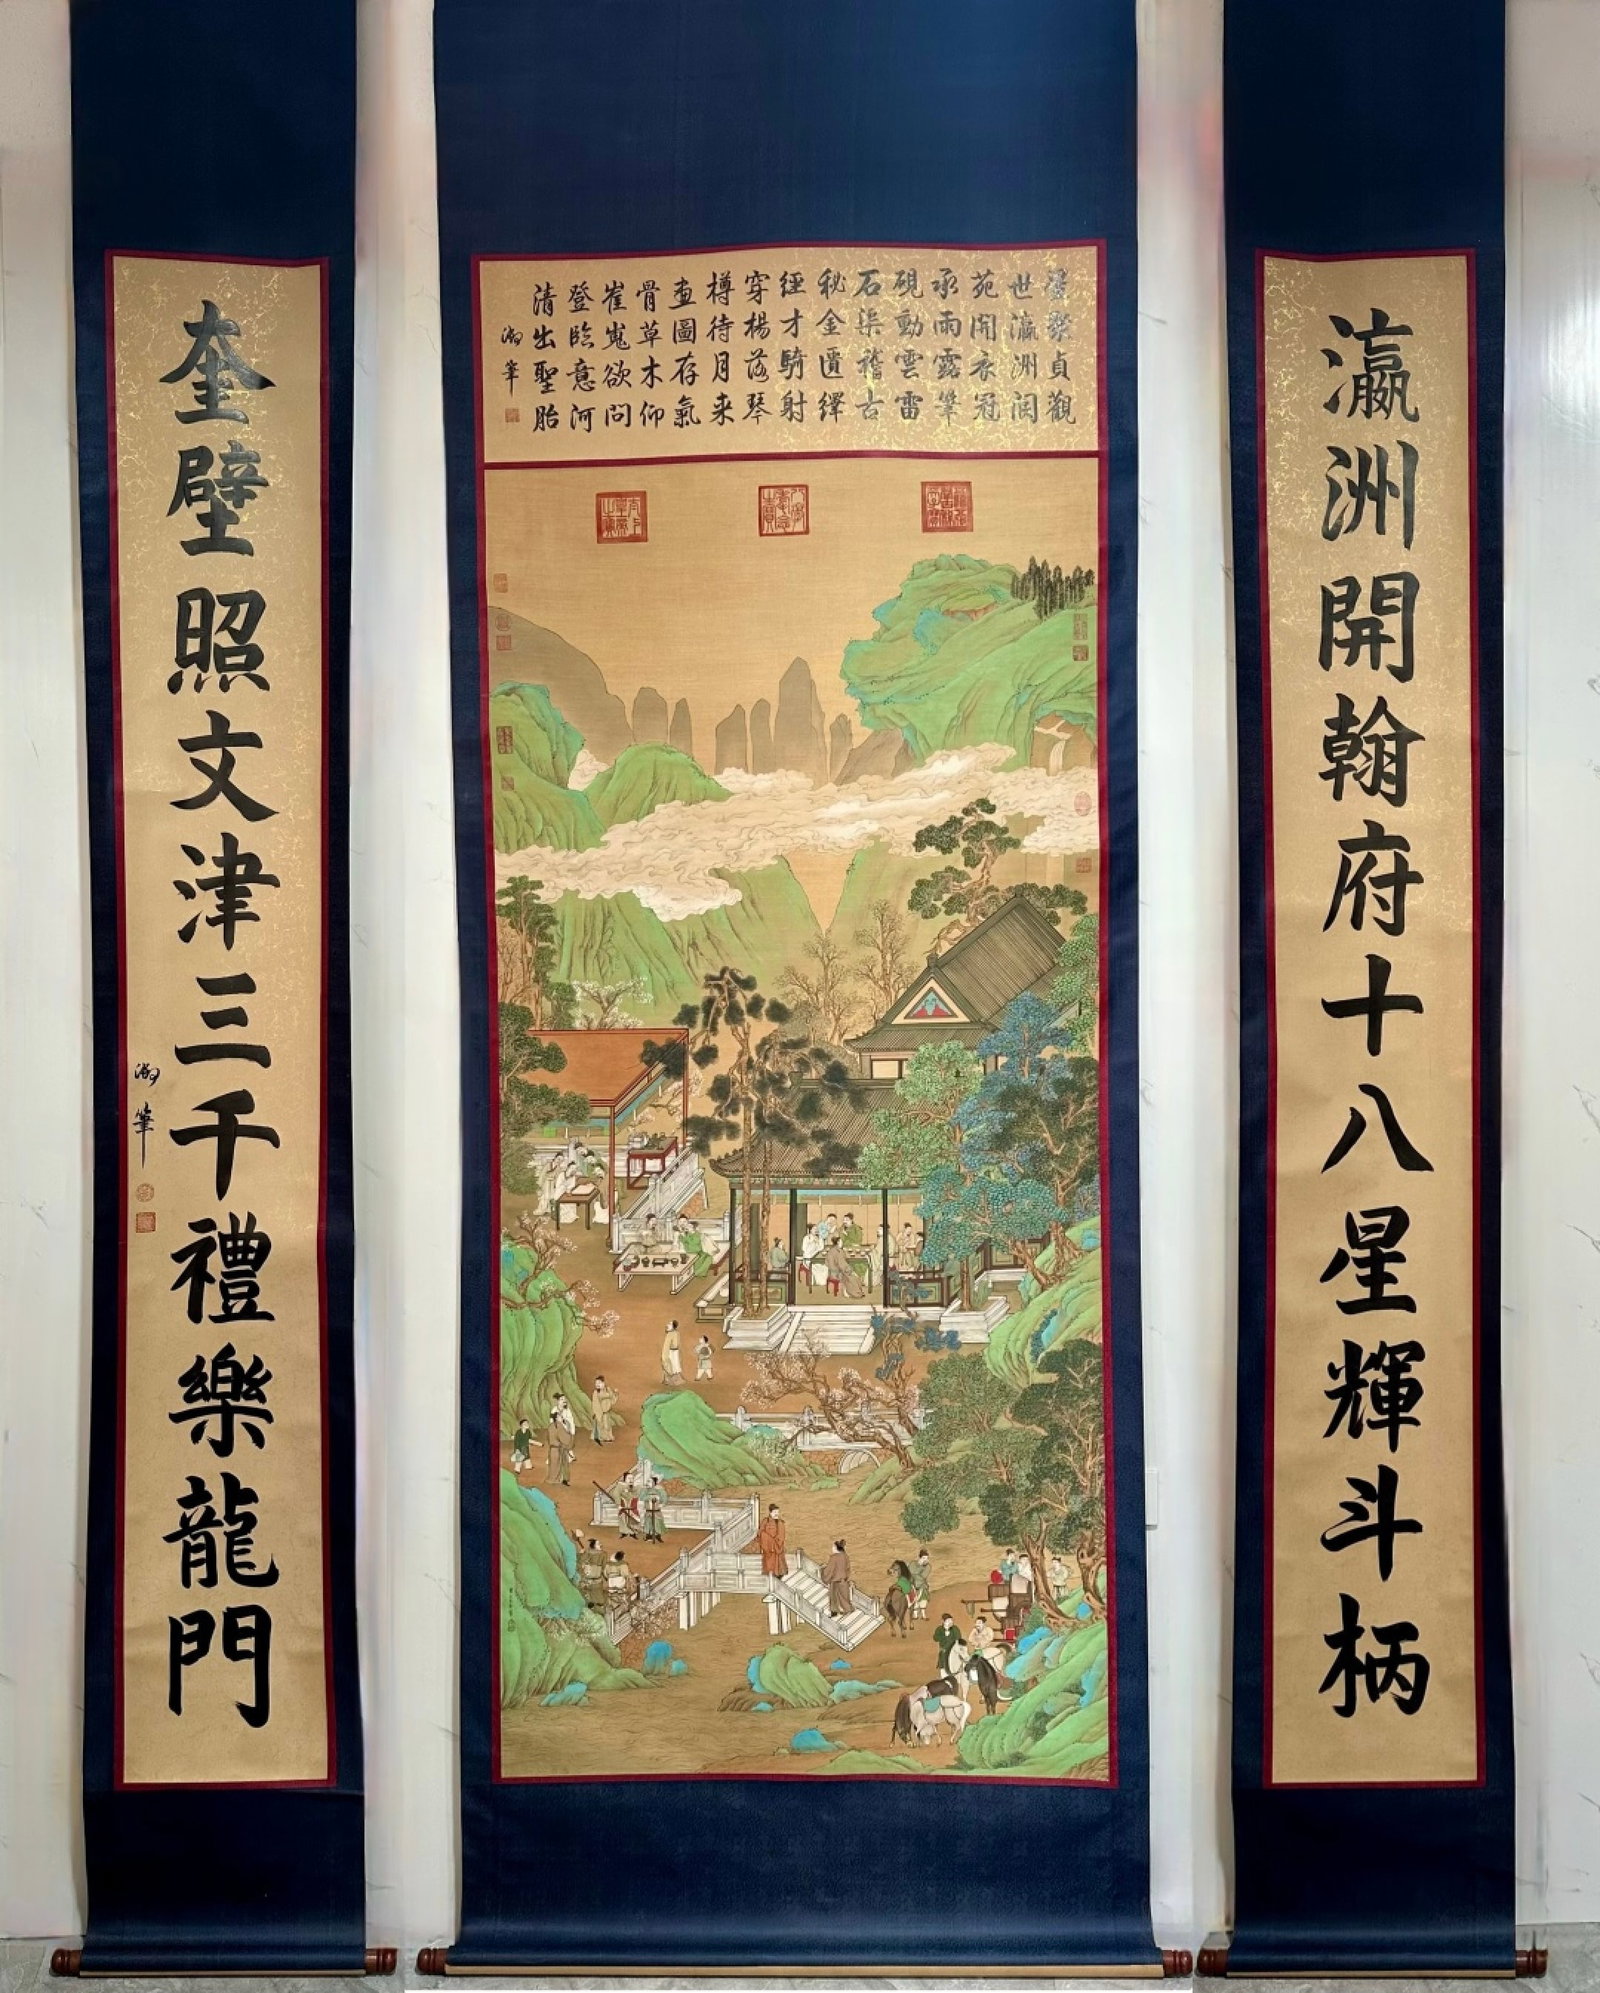 瀛洲開翰府十八星輝斗柄
星聚貞觀
世瀛洲閬
苑開衣冠
承雨露筆
硯動雲雷
石渠稽古
秘金匱繹
經才騎射
穿楊落琴
樽待月来
畫圖存氣
骨草木仰
崔嵬欲問
登臨意河
清出聖胎
筆
八徵耄念之寶
太上皇帝之寶
奎壁照文津三千禮樂龍門
筆